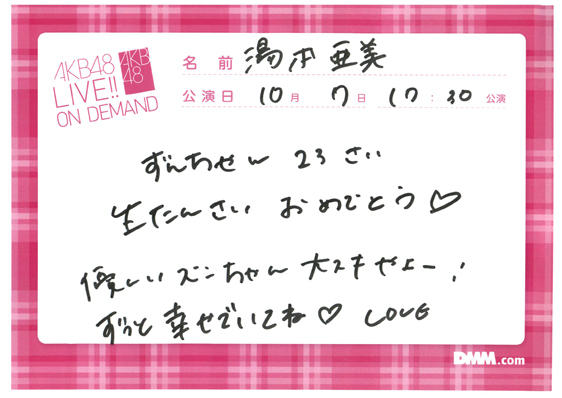 AKB48
LIVE!!
ON DEMAND
AKB
48
名前 湯本亜美
公演日 10月 7日 17:30 公演
ずんちゃん 23さい
生たんさい おめでとう♡
優しいズンちゃん 大スキやよー!
ずっと幸せでいてね♡ LOVE
DMM.com